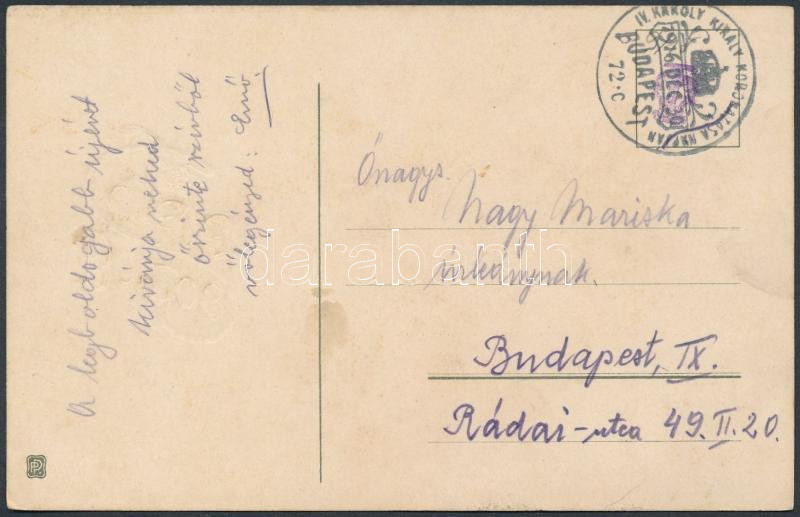 A legboldogabb újévet
kívánja neked
őszinte szívből
vőlegényed: Ernő.
IV. KÁROLY KIRÁLY KORONÁZÁSA NAPJÁN
916 DEC. 30
BUDAPEST
72·C
Őnagys.
Nagy Mariska
úrleánynak.
Budapest, IX.
Ráday-utca 49. II. 20.
darabanth